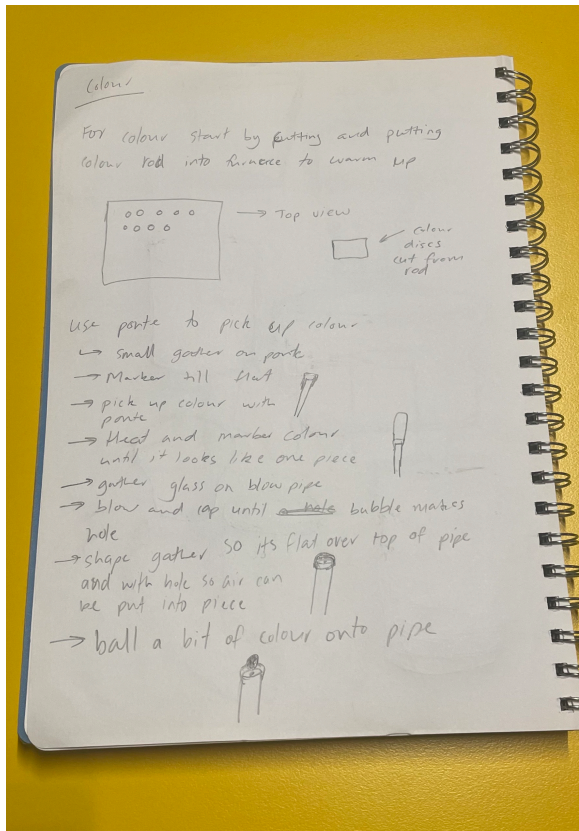 Colour
For colour start by cutting and putting
colour rod into furnace to warm up
→ Top view
colour
discs
cut from
rod
Use ponte to pick up colour
↳ small gather on ponte
→ Marker till flat
→ pick up colour with
ponte
→ Heat and marber colour
until it looks like one piece
→ gather glass on blow pipe
→ blow and cap until a hole bubble makes
hole
→ shape gather so its flat over top of pipe
and with hole so air can
be put into piece
→ ball a bit of colour onto pipe